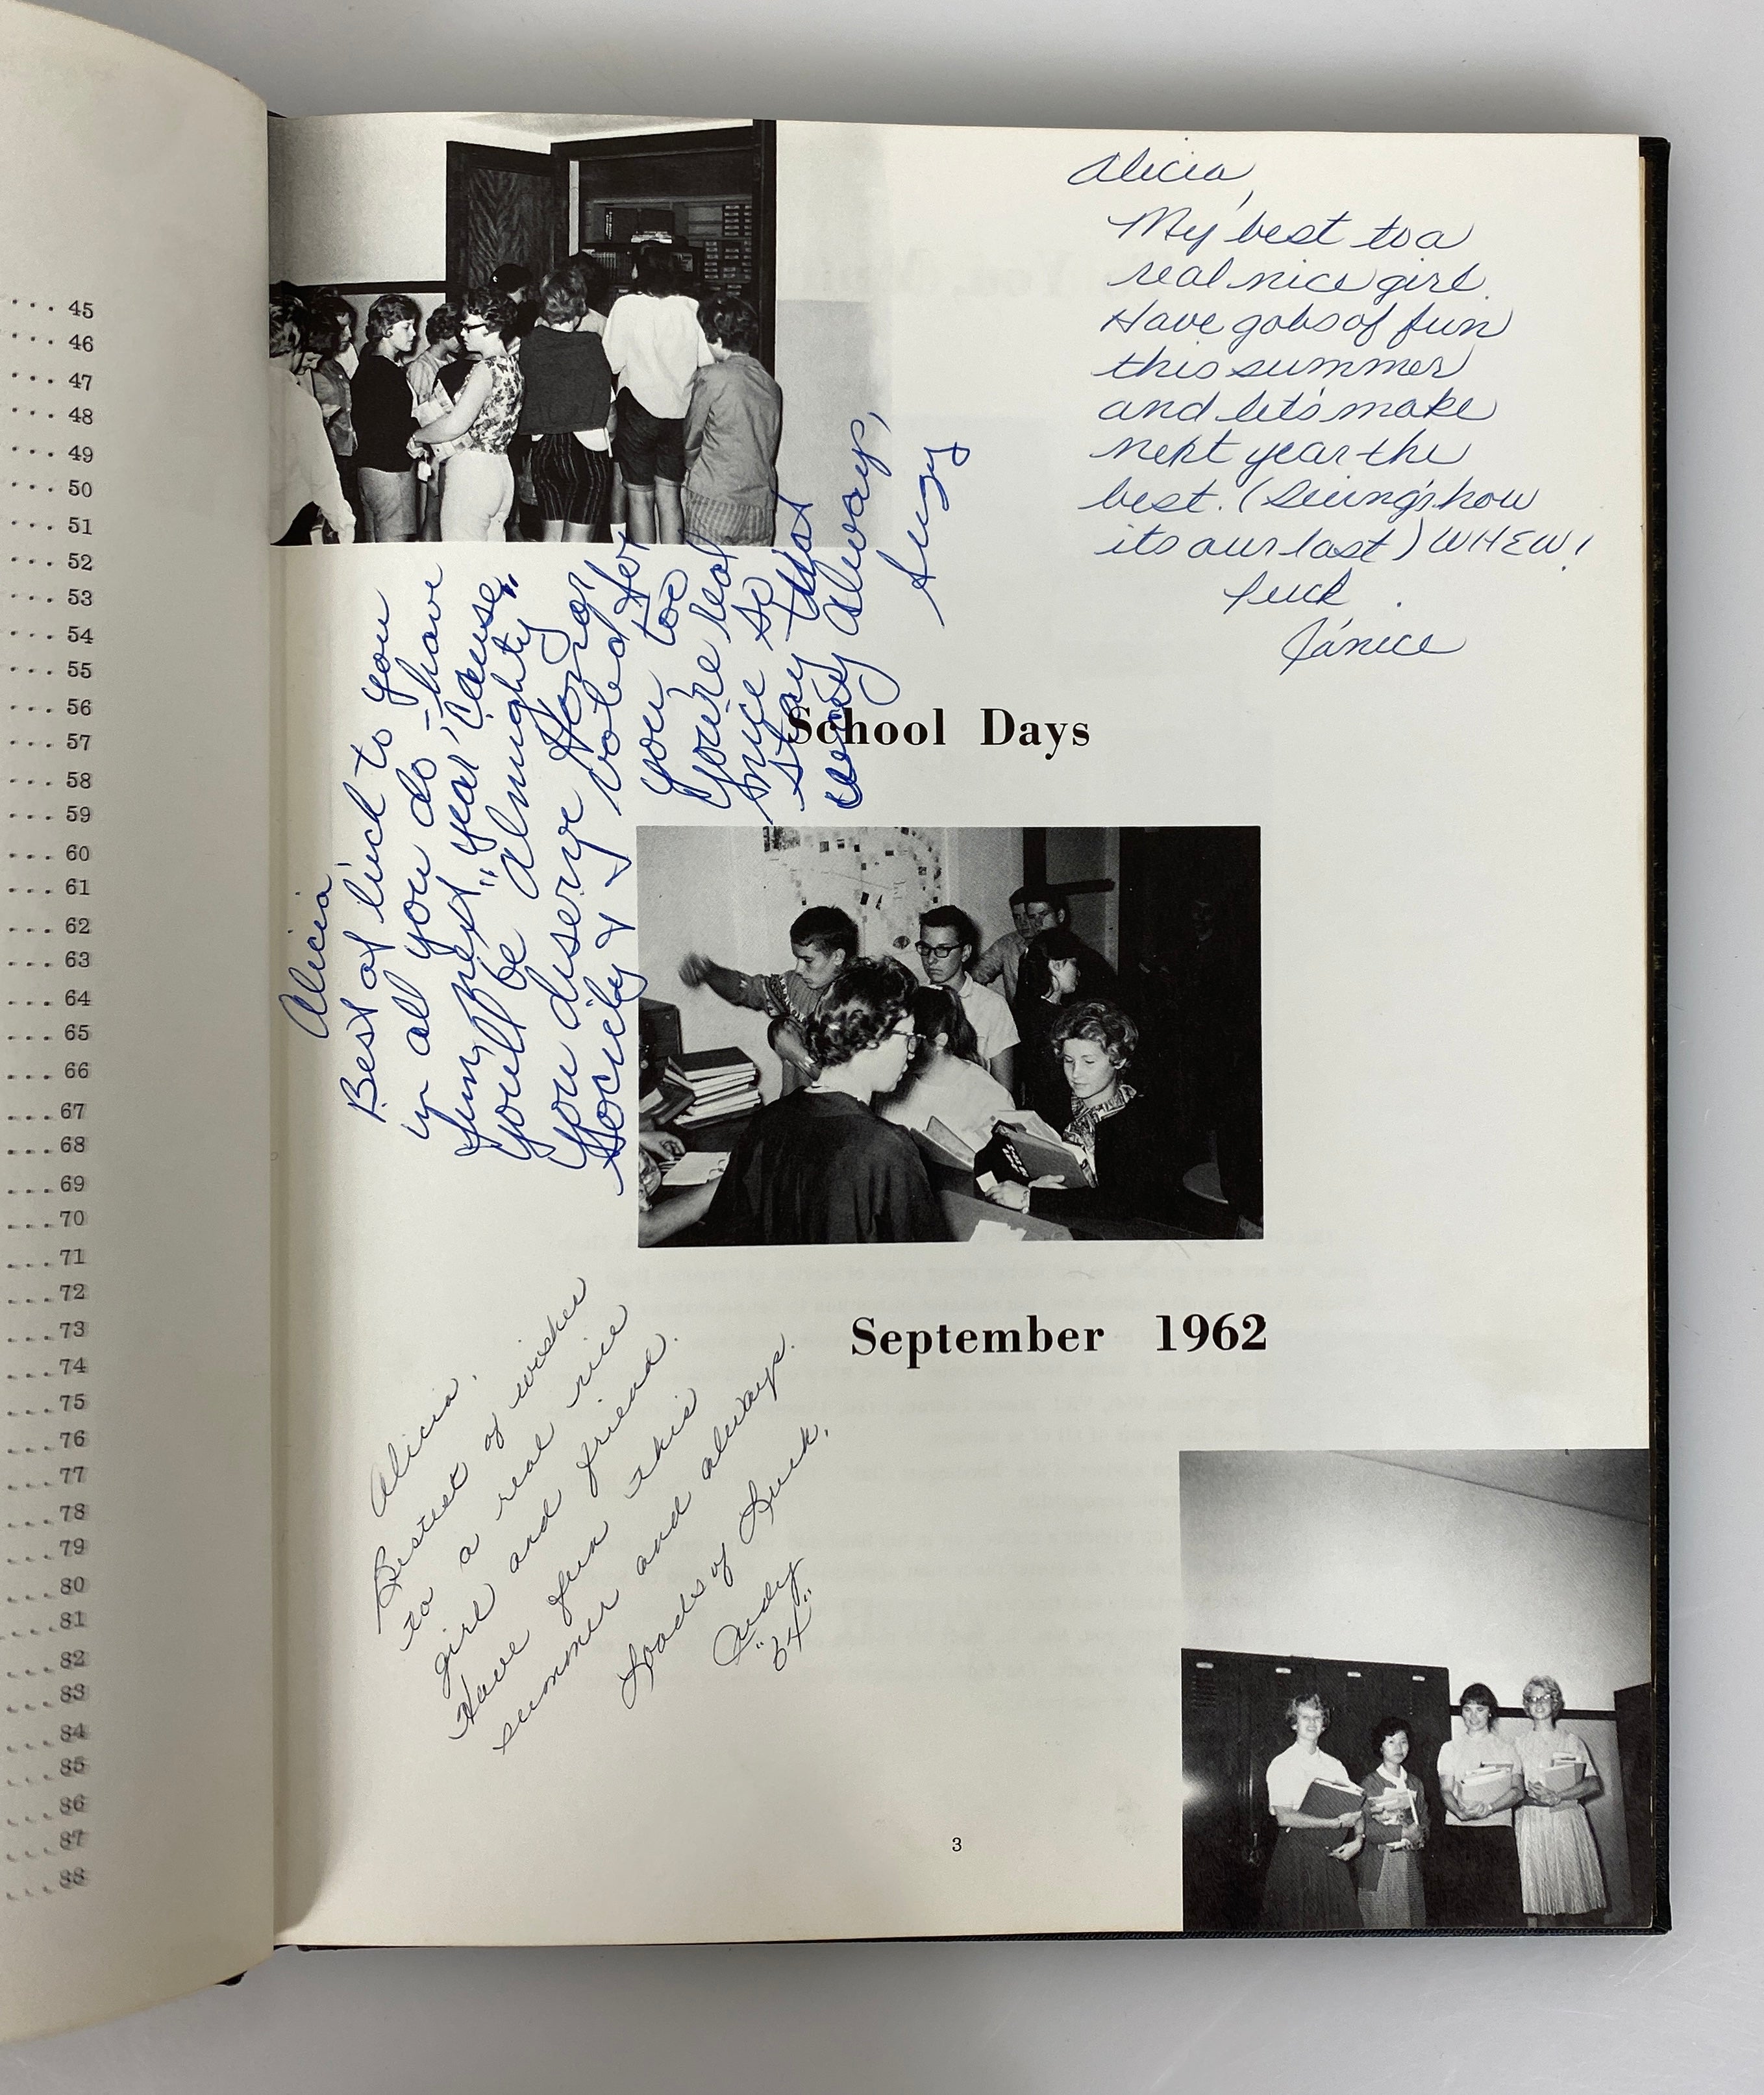 ... 45
... 46
... 47
... 48
... 49
... 50
... 51
... 52
... 53
... 54
... 55
... 56
... 57
... 58
... 59
... 60
... 61
... 62
... 63
... 64
... 65
... 66
... 67
... 68
... 69
... 70
... 71
... 72
... 73
... 74
... 75
... 76
... 77
... 78
... 79
... 80
... 81
... 82
... 83
... 84
... 85
... 86
... 87
... 88
Alicia,
My best to a
real nice girl.
Have gobs of fun
this summer
and let's make
next year the
best. (Seeing's how
its our last) WHEW!
Luck.
Janice
Alicia
Best of luck to you
in all you do - have
fun next year, 'cause
you'll be "almighty"
You diserve Honor
Society & I voted for
you too
You're real
nice so
stay that
way always,
Suzy
School Days
September 1962
Alicia,
Bestest of wishes
to a real nice
girl and friend.
Have fun this
summer and always.
Loads of Luck,
Andy
"64"
3